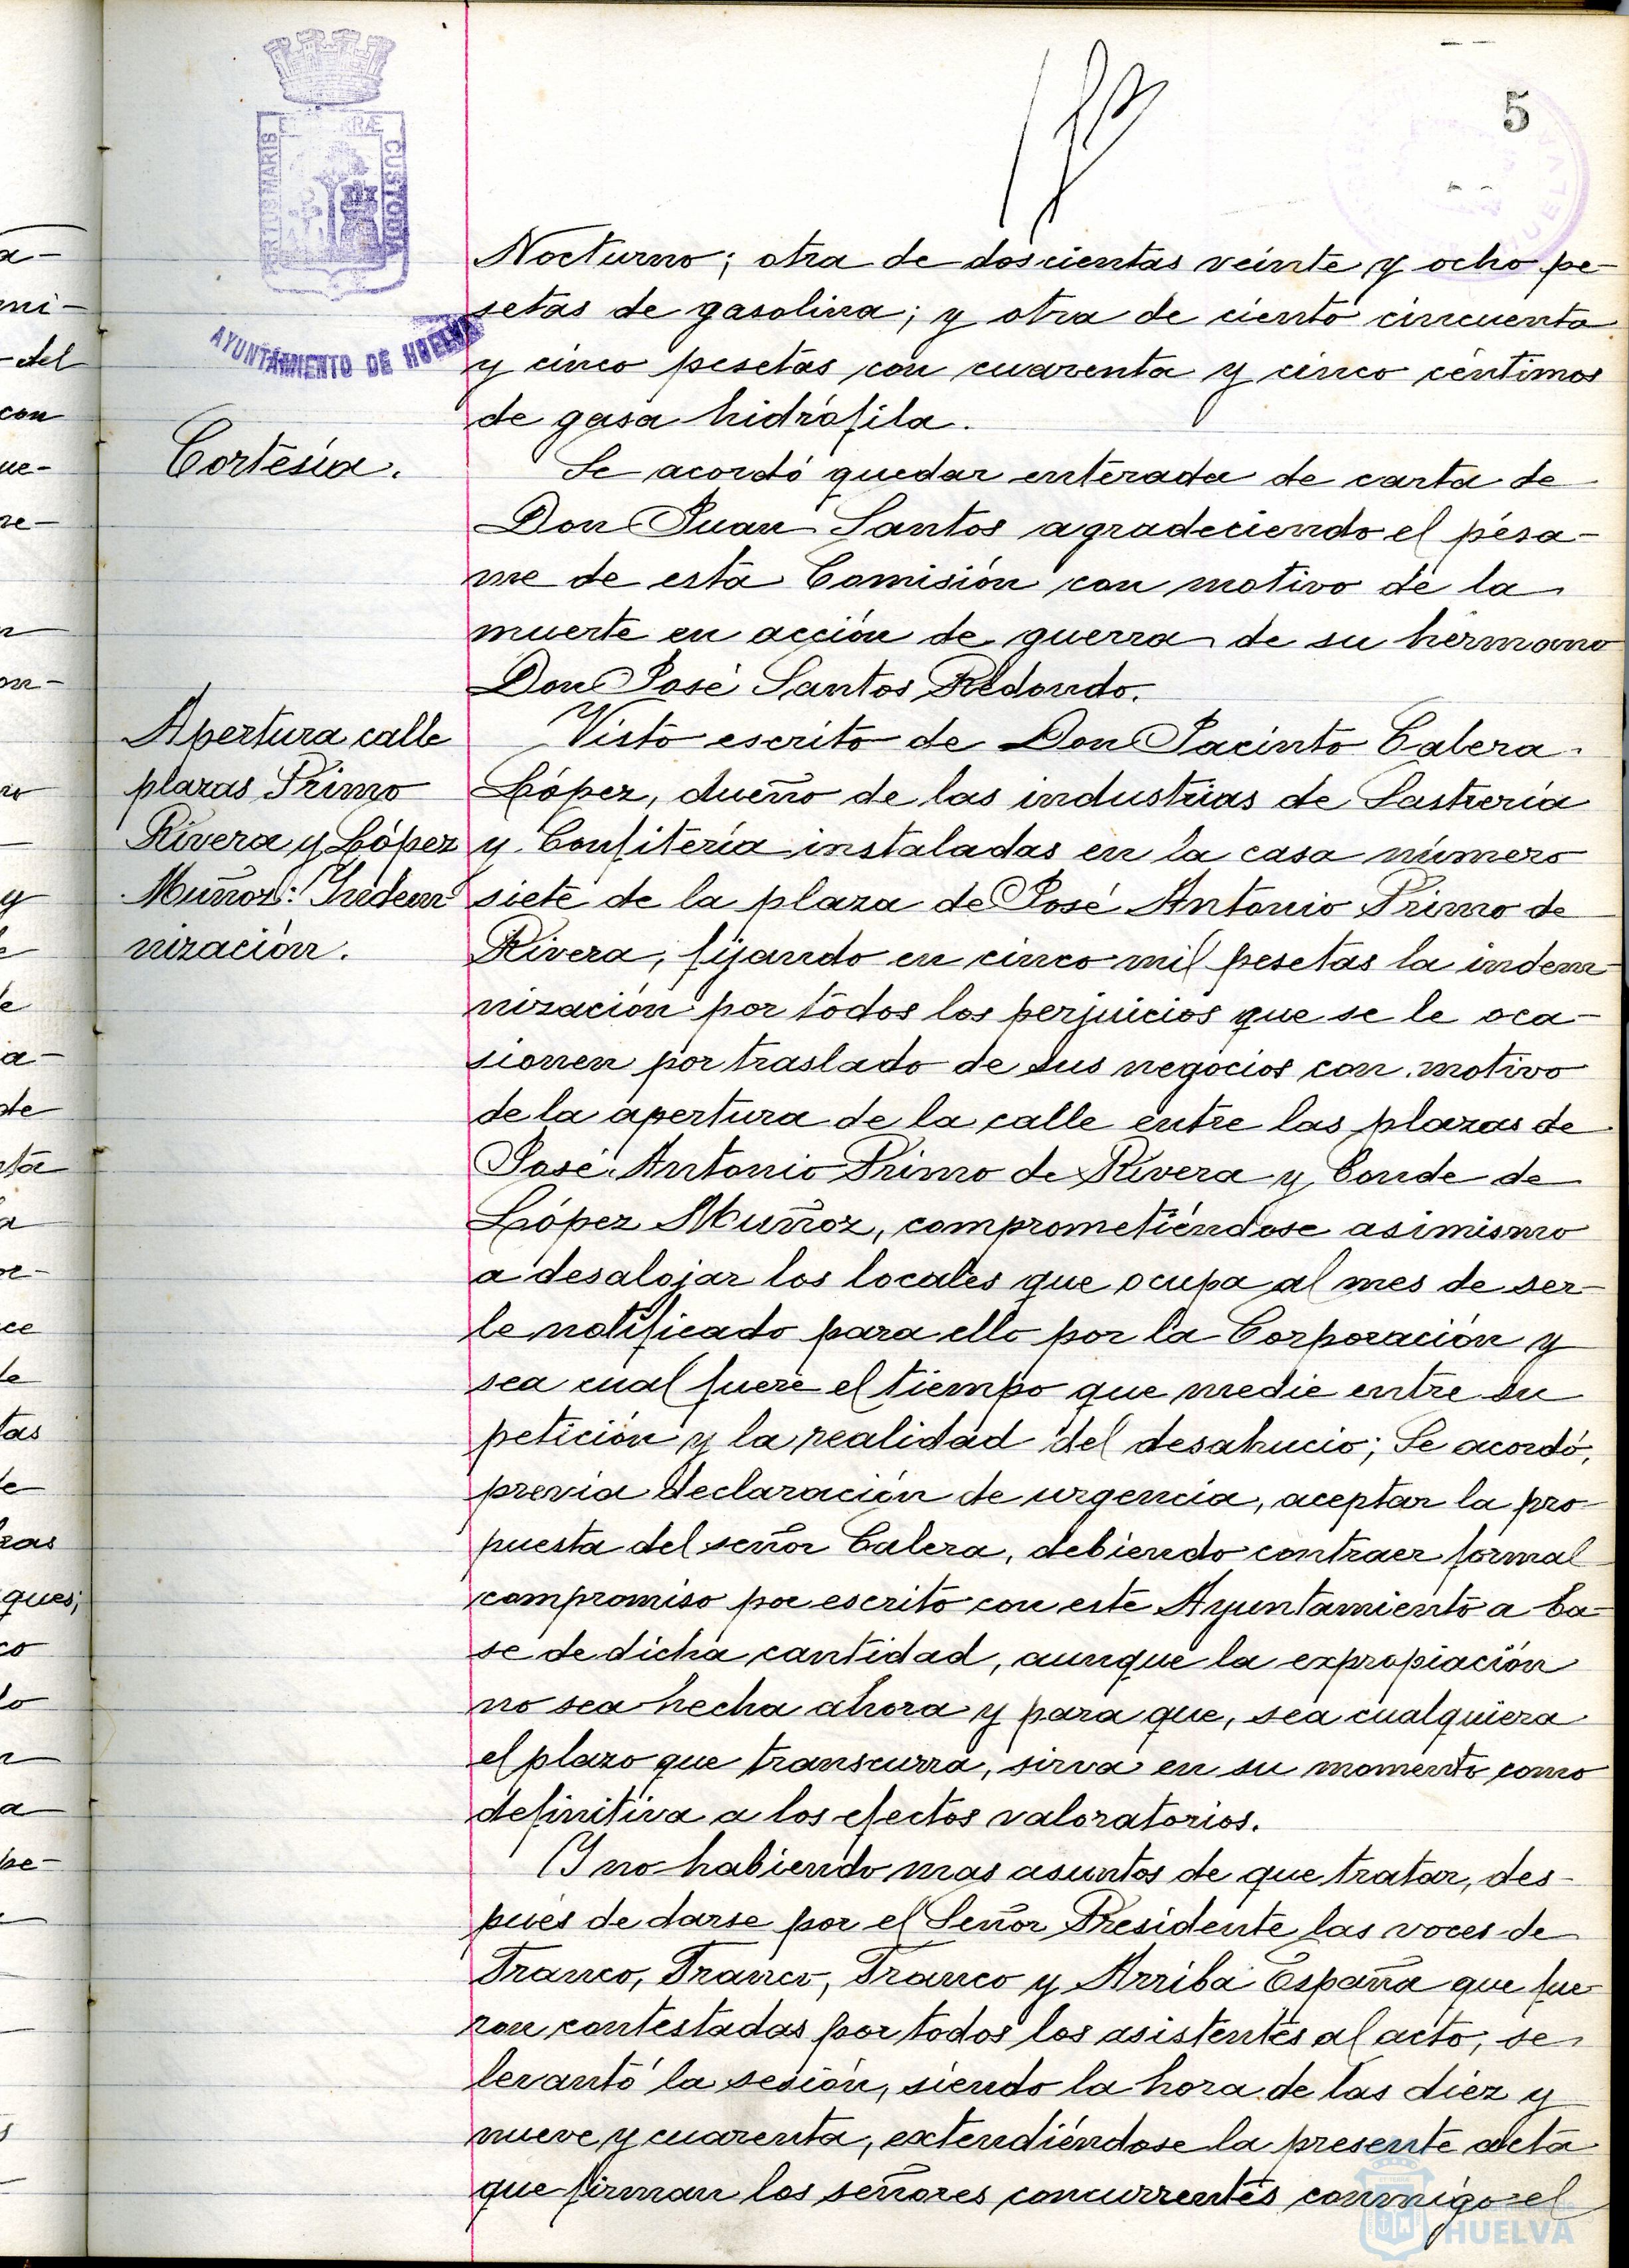 5
PORTUS MARIS ET TERRÆ CUSTODIA
AYUNTAMIENTO DE HUELVA
Nocturno; otra de doscientas veinte y ocho pe-
setas de gasolina; y otra de ciento cincuenta
y cinco pesetas con cuarenta y cinco céntimos
de gasa hidrófila.
Cortesía.
Se acordó quedar enterada de carta de
Don Juan Santos agradeciendo el pésa-
me de esta Comisión con motivo de la
muerte en acción de guerra de su hermano
Don José Santos Redondo.
Apertura calle
plazas Primo
Rivera y López
Muñoz: Indem-
nización.
Visto escrito de Don Jacinto Calera
López, dueño de las industrias de Sastrería
y Confitería instaladas en la casa número
siete de la plaza de José Antonio Primo de
Rivera, fijando en cinco mil pesetas la indem-
nización por todos los perjuicios que se le oca-
sionen por traslado de sus negocios con motivo
de la apertura de la calle entre las plazas de
José Antonio Primo de Rivera y Conde de
López Muñoz, comprometiéndose asimismo
a desalojar los locales que ocupa al mes de ser-
le notificado para ello por la Corporación y
sea cual fuere el tiempo que medie entre su
petición y la realidad del desahucio; Se acordó,
previa declaración de urgencia, aceptar la pro-
puesta del señor Calera, debiendo contraer formal
compromiso por escrito con este Ayuntamiento a ba-
se de dicha cantidad, aunque la expropiación
no sea hecha ahora y para que, sea cualquiera
el plazo que transcurra, sirva en su momento como
definitiva a los efectos valoratorios.
Y no habiendo mas asuntos de que tratar, des-
pués de darse por el Señor Presidente las voces de
Franco, Franco, Franco y Arriba España que fue-
ron contestadas por todos los asistentes al acto, se
levantó la sesión, siendo la hora de las diez y
nueve y cuarenta, extendiéndose la presente acta
que firman los señores concurrentes conmigo el
HUELVA